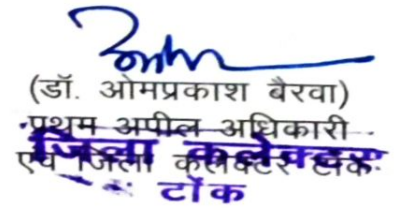 (डॉ. ओमप्रकाश बैरवा)
प्रथम अपील अधिकारी
एवं जिला कलेक्टर टोंक
जिला कलेक्टर
टोंक